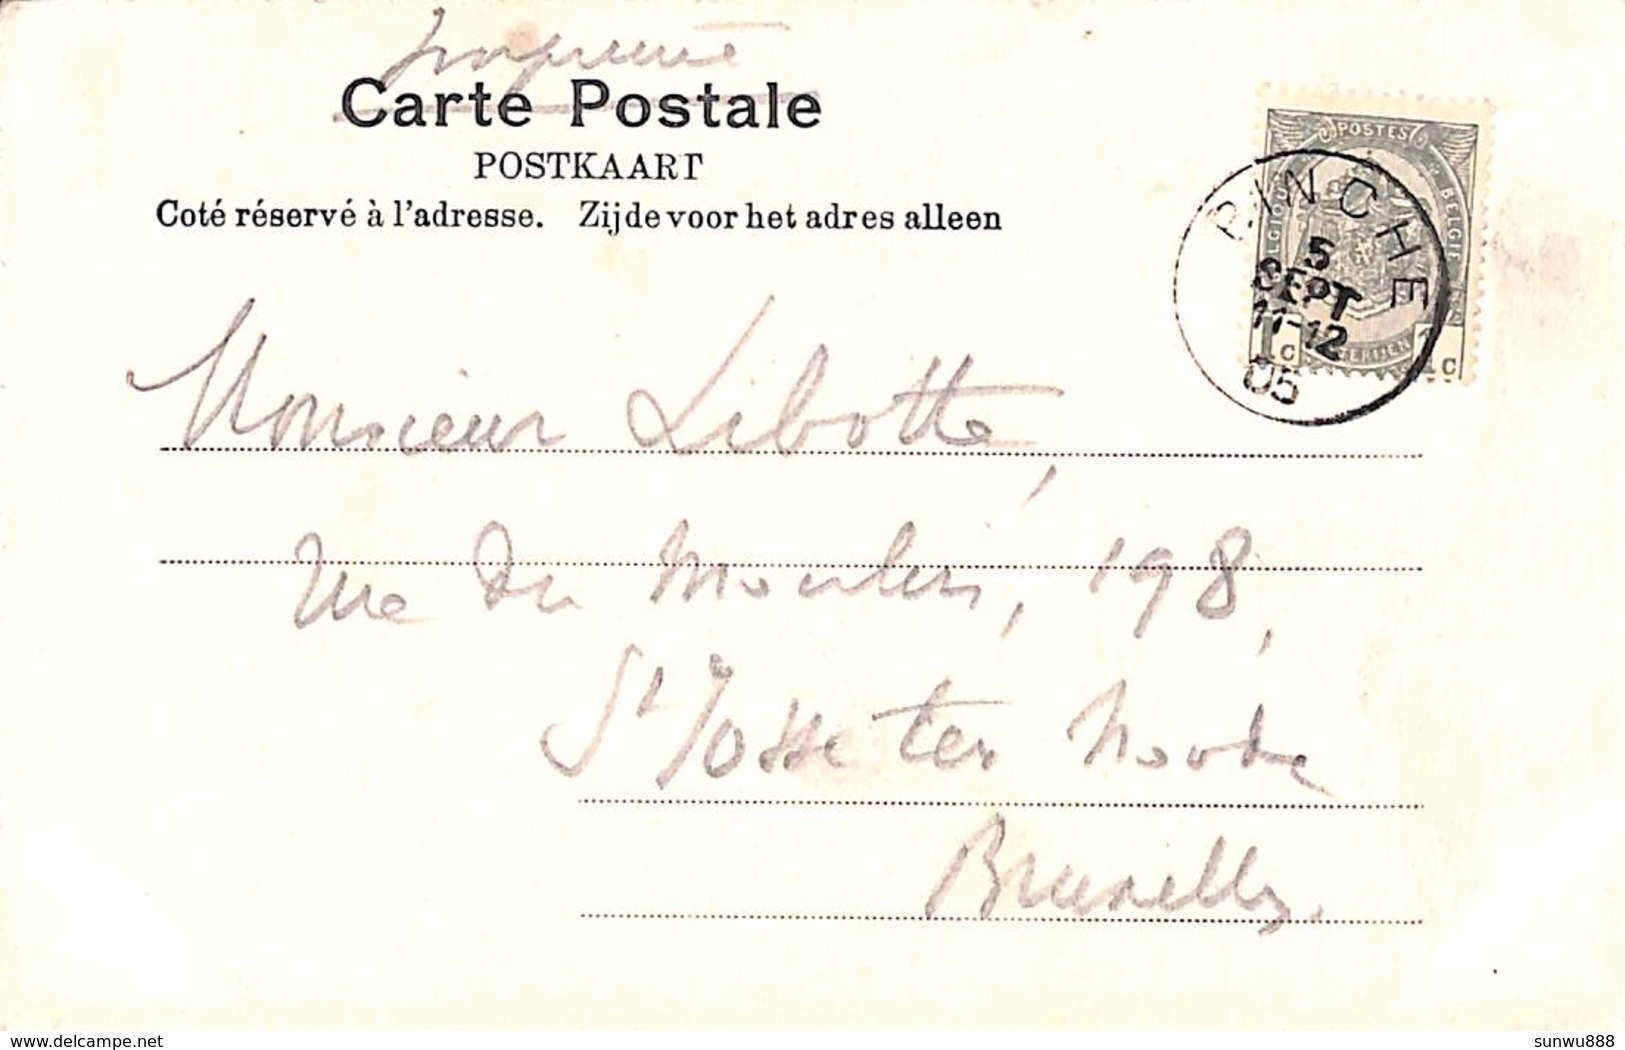 Imprimé
Carte Postale
POSTKAART
Coté réservé à l'adresse. Zijde voor het adres alleen
POSTES
BELGI
1c
1c
BINCHE
5
SEPT
11-12
05
Monsieur Libotte,
rue du Moulin, 198,
St Josse ten Noode
Bruxelles.
delcampe.net
sunwu888